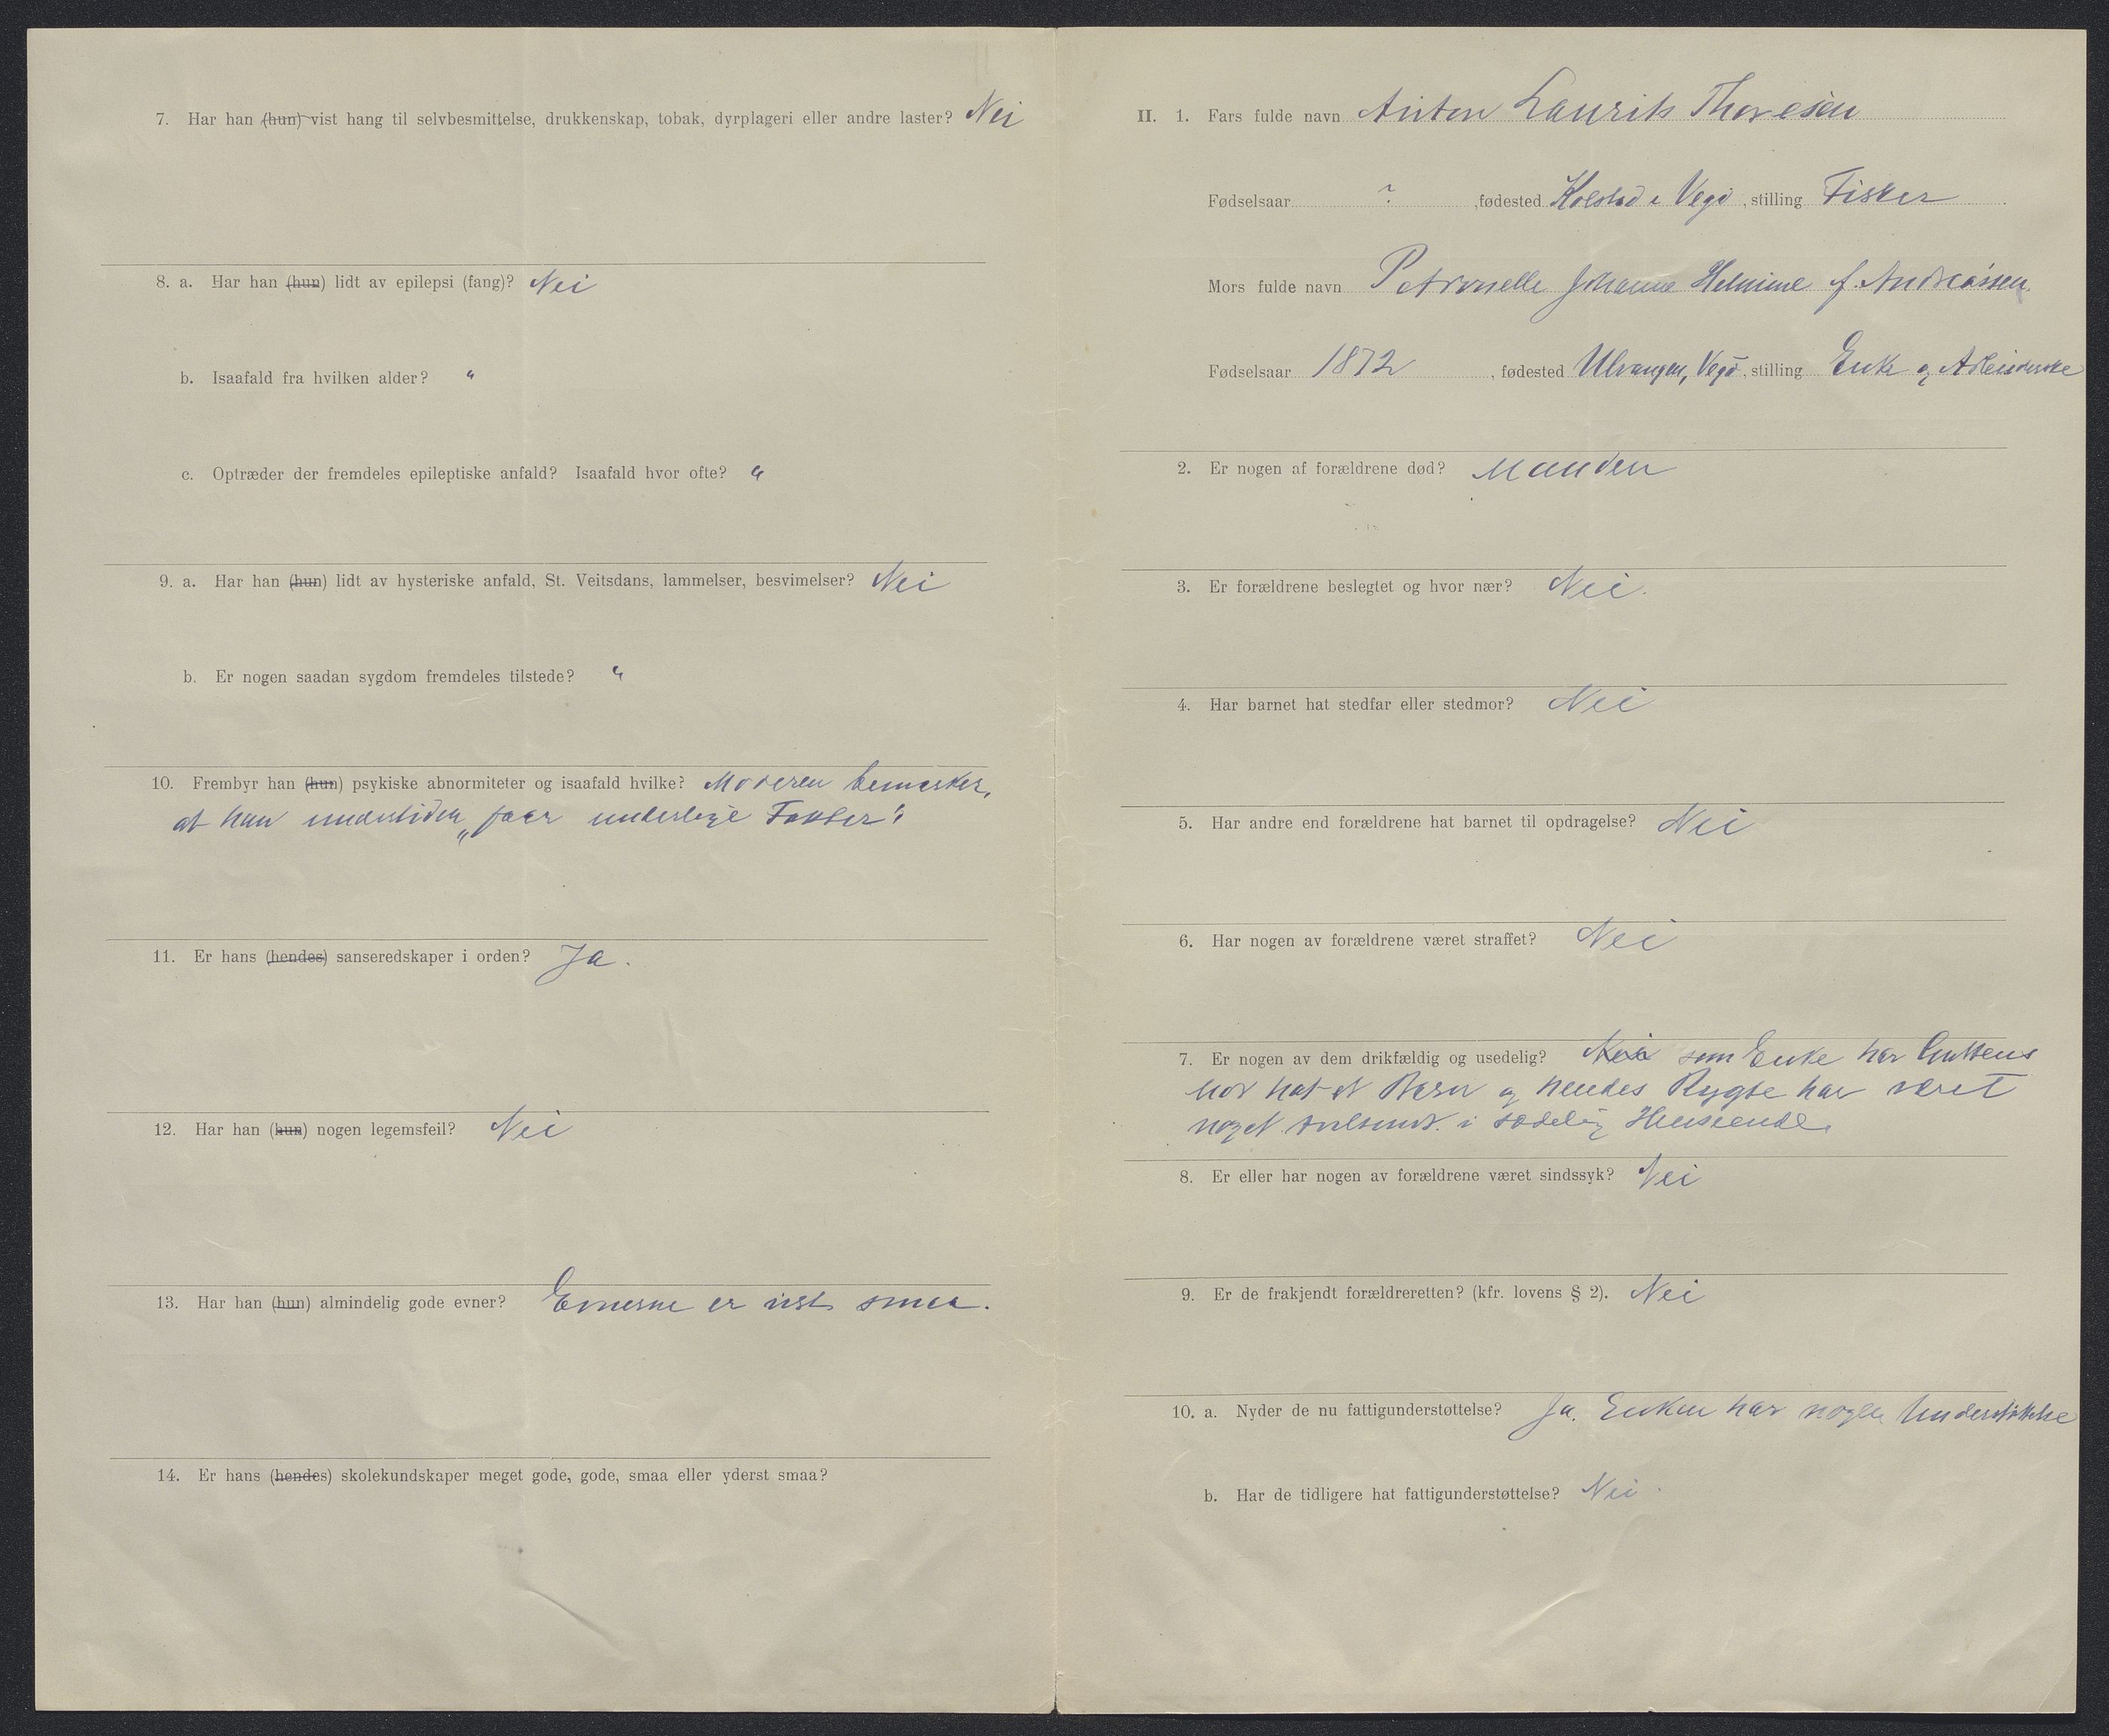 7. Har han (hun) vist hang til selvbesmittelse, drukkenskap, tobak, dyrplageri eller andre laster? Nei
8. a. Har han (hun) lidt av epilepsi (fang)? Nei
b. Isaafald fra hvilken alder? "
c. Optræder der fremdeles epileptiske anfald? Isaafald hvor ofte? "
9. a. Har han (hun) lidt av hysteriske anfald, St. Veitsdans, lammelser, besvimelser? Nei
b. Er nogen saadan sygdom fremdeles tilstede? "
10. Frembyr han (hun) psykiske abnormiteter og isaafald hvilke? Moderen bemerker,
at han undertiden „faar underlige Fakter".
11. Er hans (hendes) sanseredskaper i orden? Ja.
12. Har han (hun) nogen legemsfeil? Nei
13. Har han (hun) almindelig gode evner? Evnerne er vist smaa.
14. Er hans (hendes) skolekundskaper meget gode, gode, smaa eller yderst smaa?
II. 1. Fars fulde navn Anton Laurits Thoresen
Fødselsaar ? , fødested Kolstad i Vegø, stilling Fisker
Mors fulde navn Petronelle Johanne Helmine f. Andreassen
Fødselsaar 1872, fødested Ulvangen, Vegø, stilling Enke og Arbeiderske
2. Er nogen af forældrene død? Manden
3. Er forældrene beslegtet og hvor nær? Nei.
4. Har barnet hat stedfar eller stedmor? Nei
5. Har andre end forældrene hat barnet til opdragelse? Nei
6. Har nogen av forældrene været straffet? Nei
7. Er nogen av dem drikfældig og usedelig? Nei som Enke har Guttens
mor hat et Barn og hendes Rygte har været
noget tvilsomt i sædelig Henseende.
8. Er eller har nogen av forældrene været sindssyk? Nei
9. Er de frakjendt forældreretten? (kfr. lovens § 2). Nei
10. a. Nyder de nu fattigunderstøttelse? Ja. Enken har nogen Understøttelse
b. Har de tidligere hat fattigunderstøttelse? Nei.